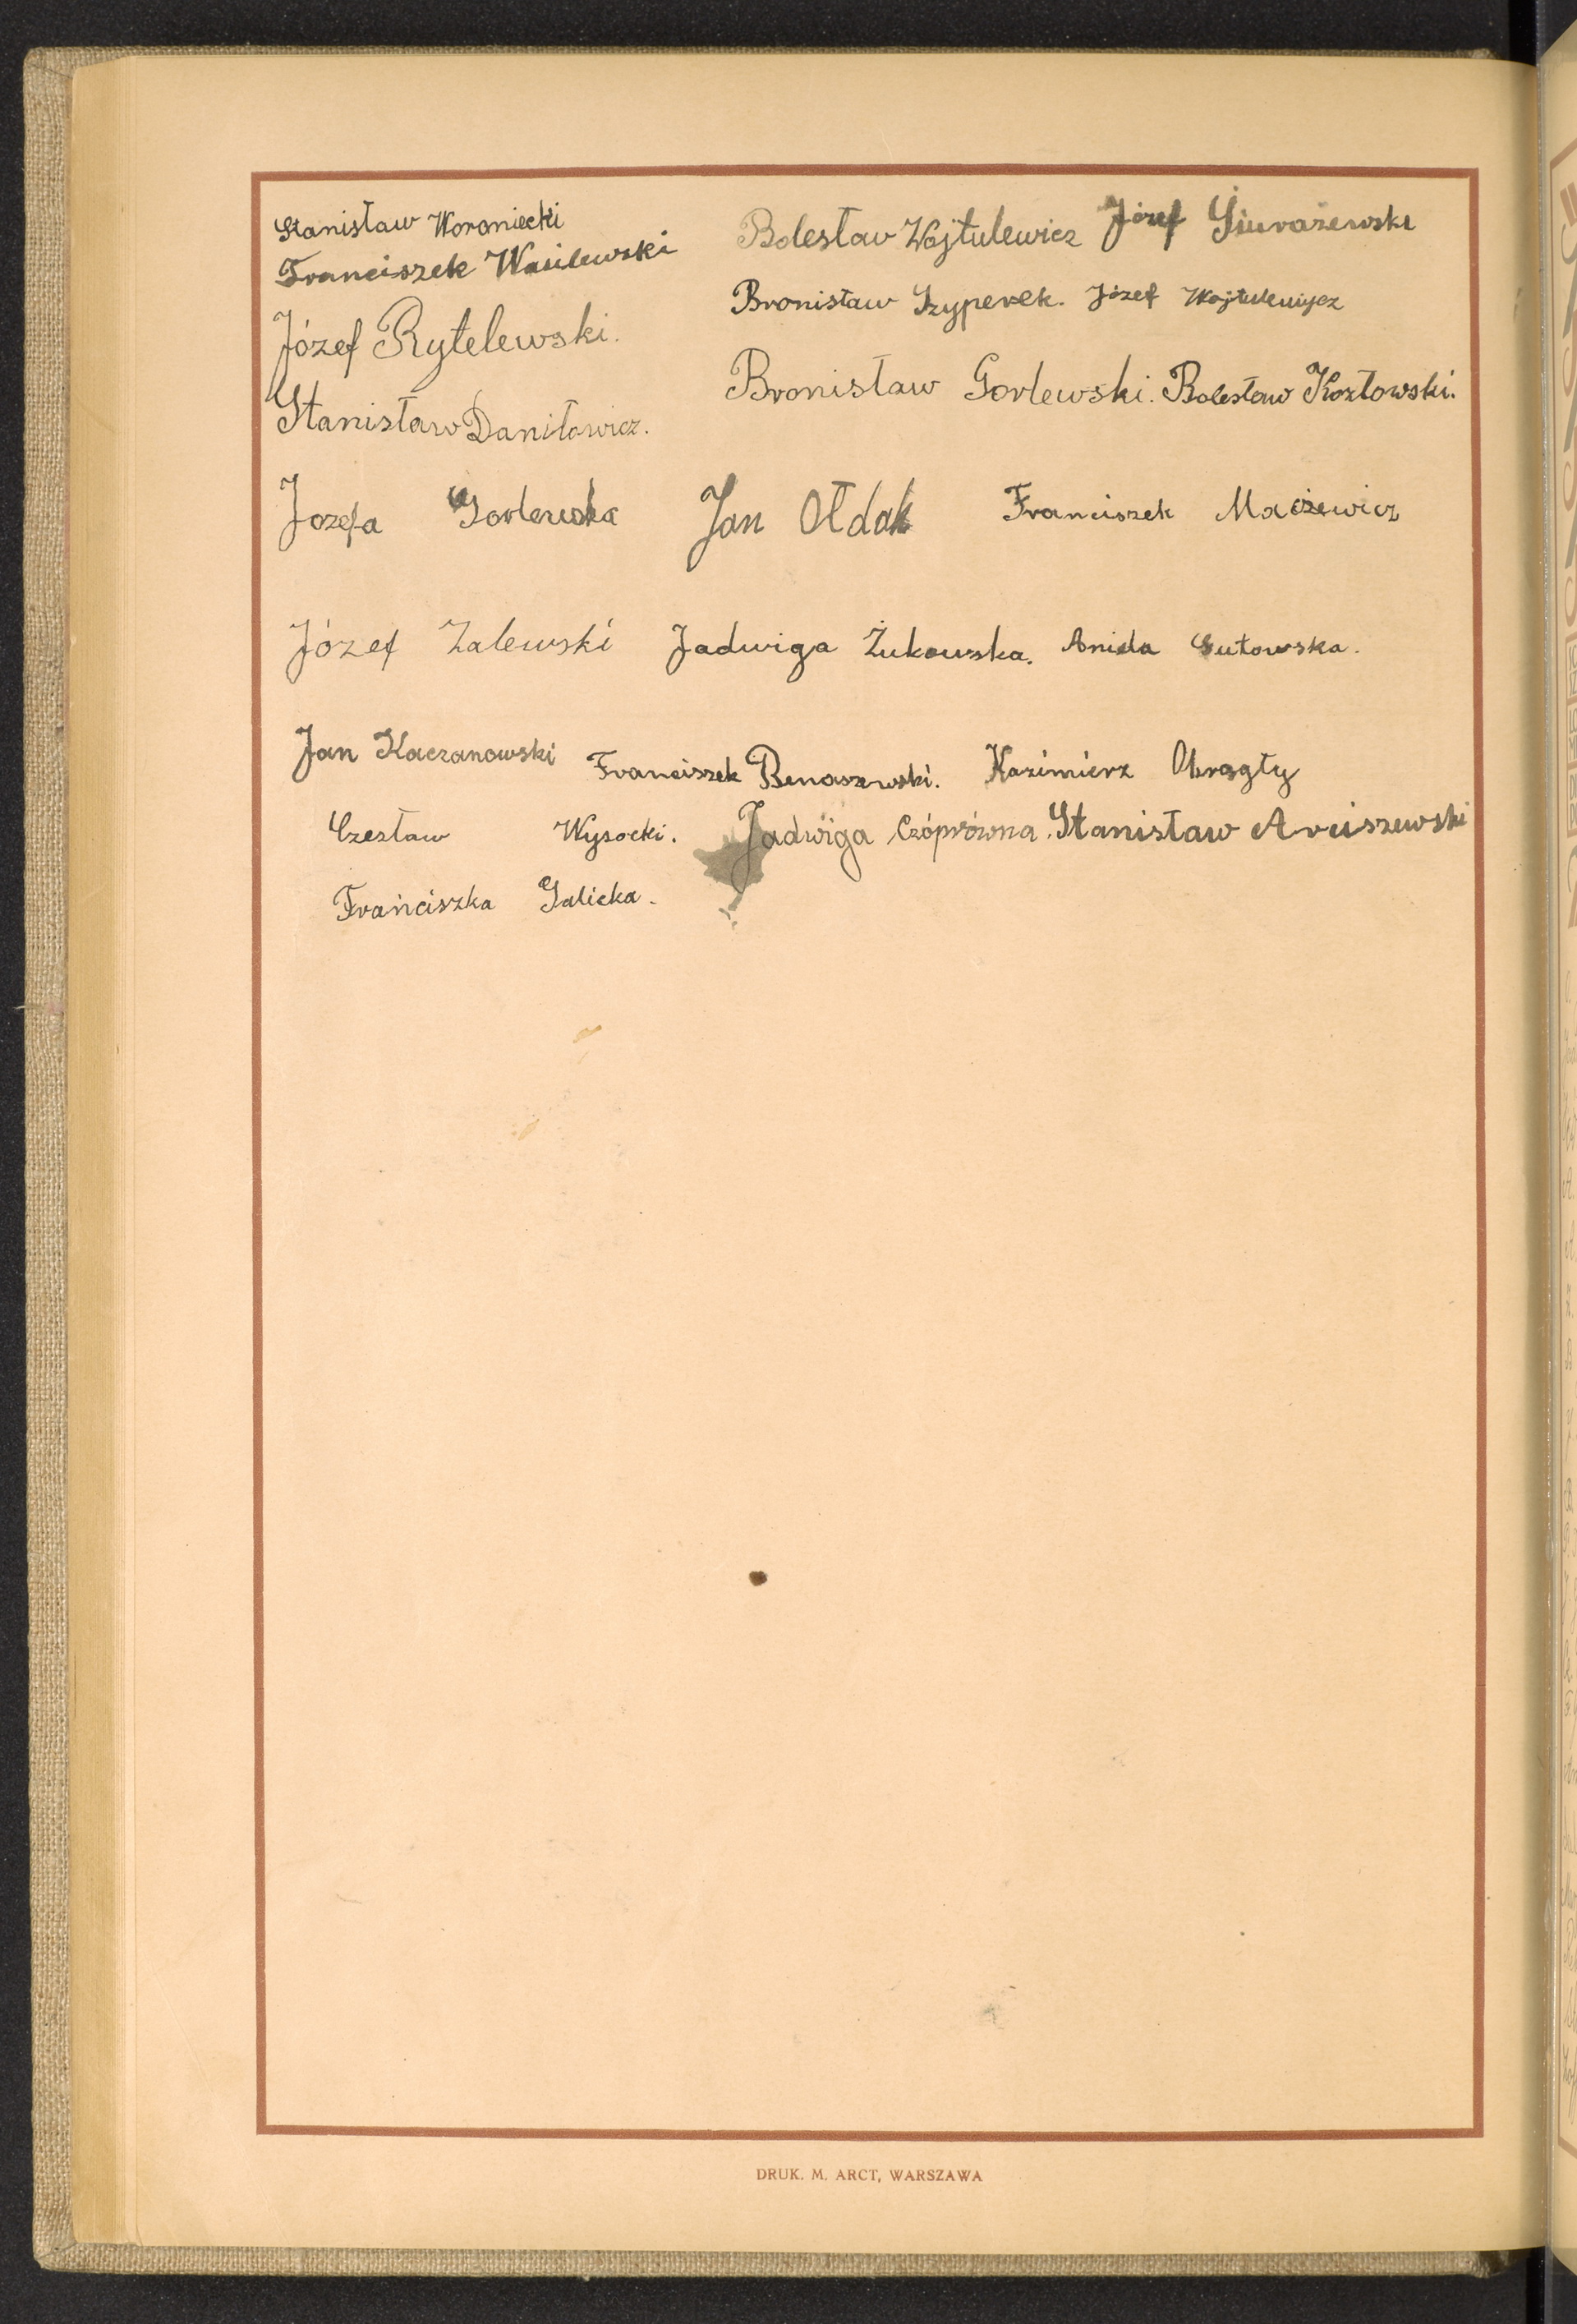 Stanisław Woroniecki
Franciszek Wasilewski
Bolesław Wojtulewicz Józef
Józef Rytelewski.
Bronisław Szyperek. Józef Wojtulewicz
Stanisław Daniłowicz.
Bronisław Gorlewski. Bolesław Kozłowski.
Józefa Gorlewska Jan Ołdak Franciszek Maciżewicz
Józef Zalewski Jadwiga Żukowska. Aniela Gutowska.
Jan Kaczanowski Franciszek Benaszewski. Kazimierz Okrągły
Czesław Wysocki. Jadwiga Czóprówna. Stanisław Arciszewski
Franciszka Galicka.
DRUK. M. ARCT, WARSZAWA